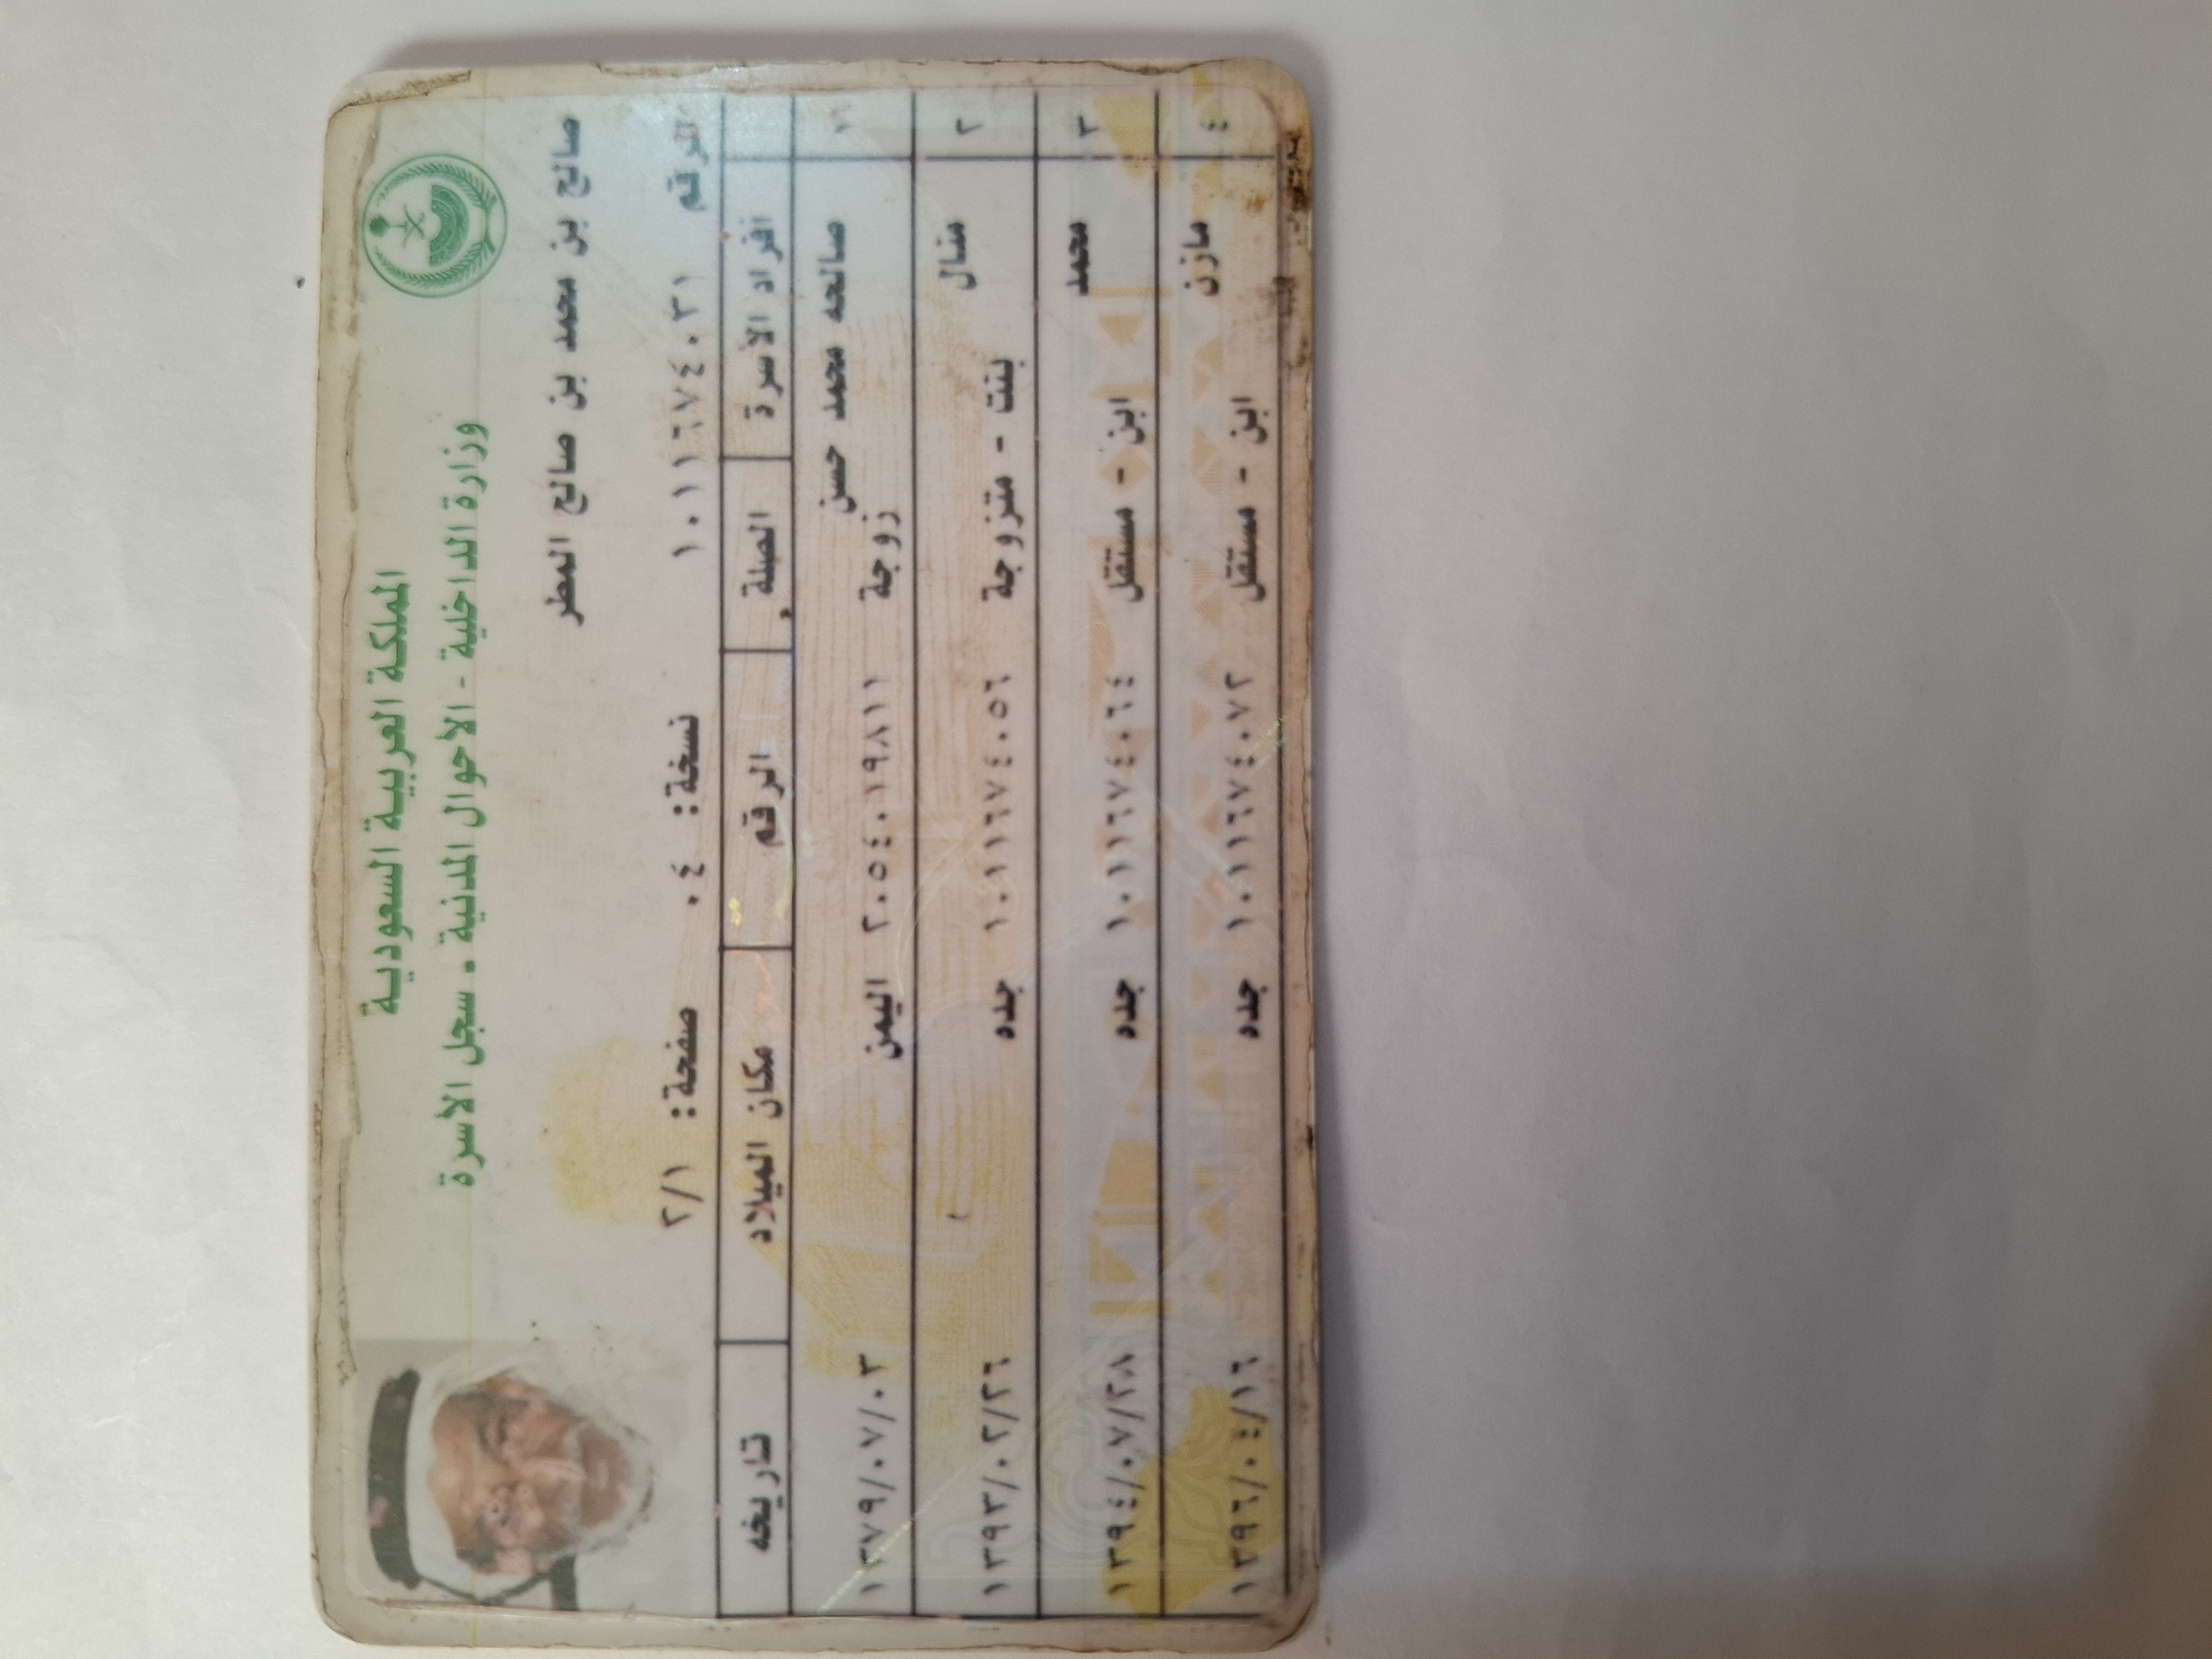 المملكة العربية السعودية
وزارة الداخلية - الأحوال المدنية - سجل الأسرة
صالح بن محمد بن صالح المطر
الرقم ١٠١١٦٧٤٠٣١ نسخة: ٠٤ صفحة: ٢/١
افراد الأسرة الصلة الرقم مكان الميلاد تاريخه
١ صالحه محمد حسن
زوجة ٢٠٥٤٠١٩٨١١ اليمن ١٣٧٩/٠٧/٠٣
٢ منال
بنت - متزوجة ١٠١١٦٧٤٠٥٦ جده ١٣٩٣/٠٢/٢٦
٣ محمد
ابن - مستقل ١٠١١٦٧٤٠٦٤ جده ١٣٩٤/٠٧/٢٨
٤ مازن
ابن - مستقل ١٠١١٦٧٤٠٧٢ جده ١٣٩٦/٠٤/١٦